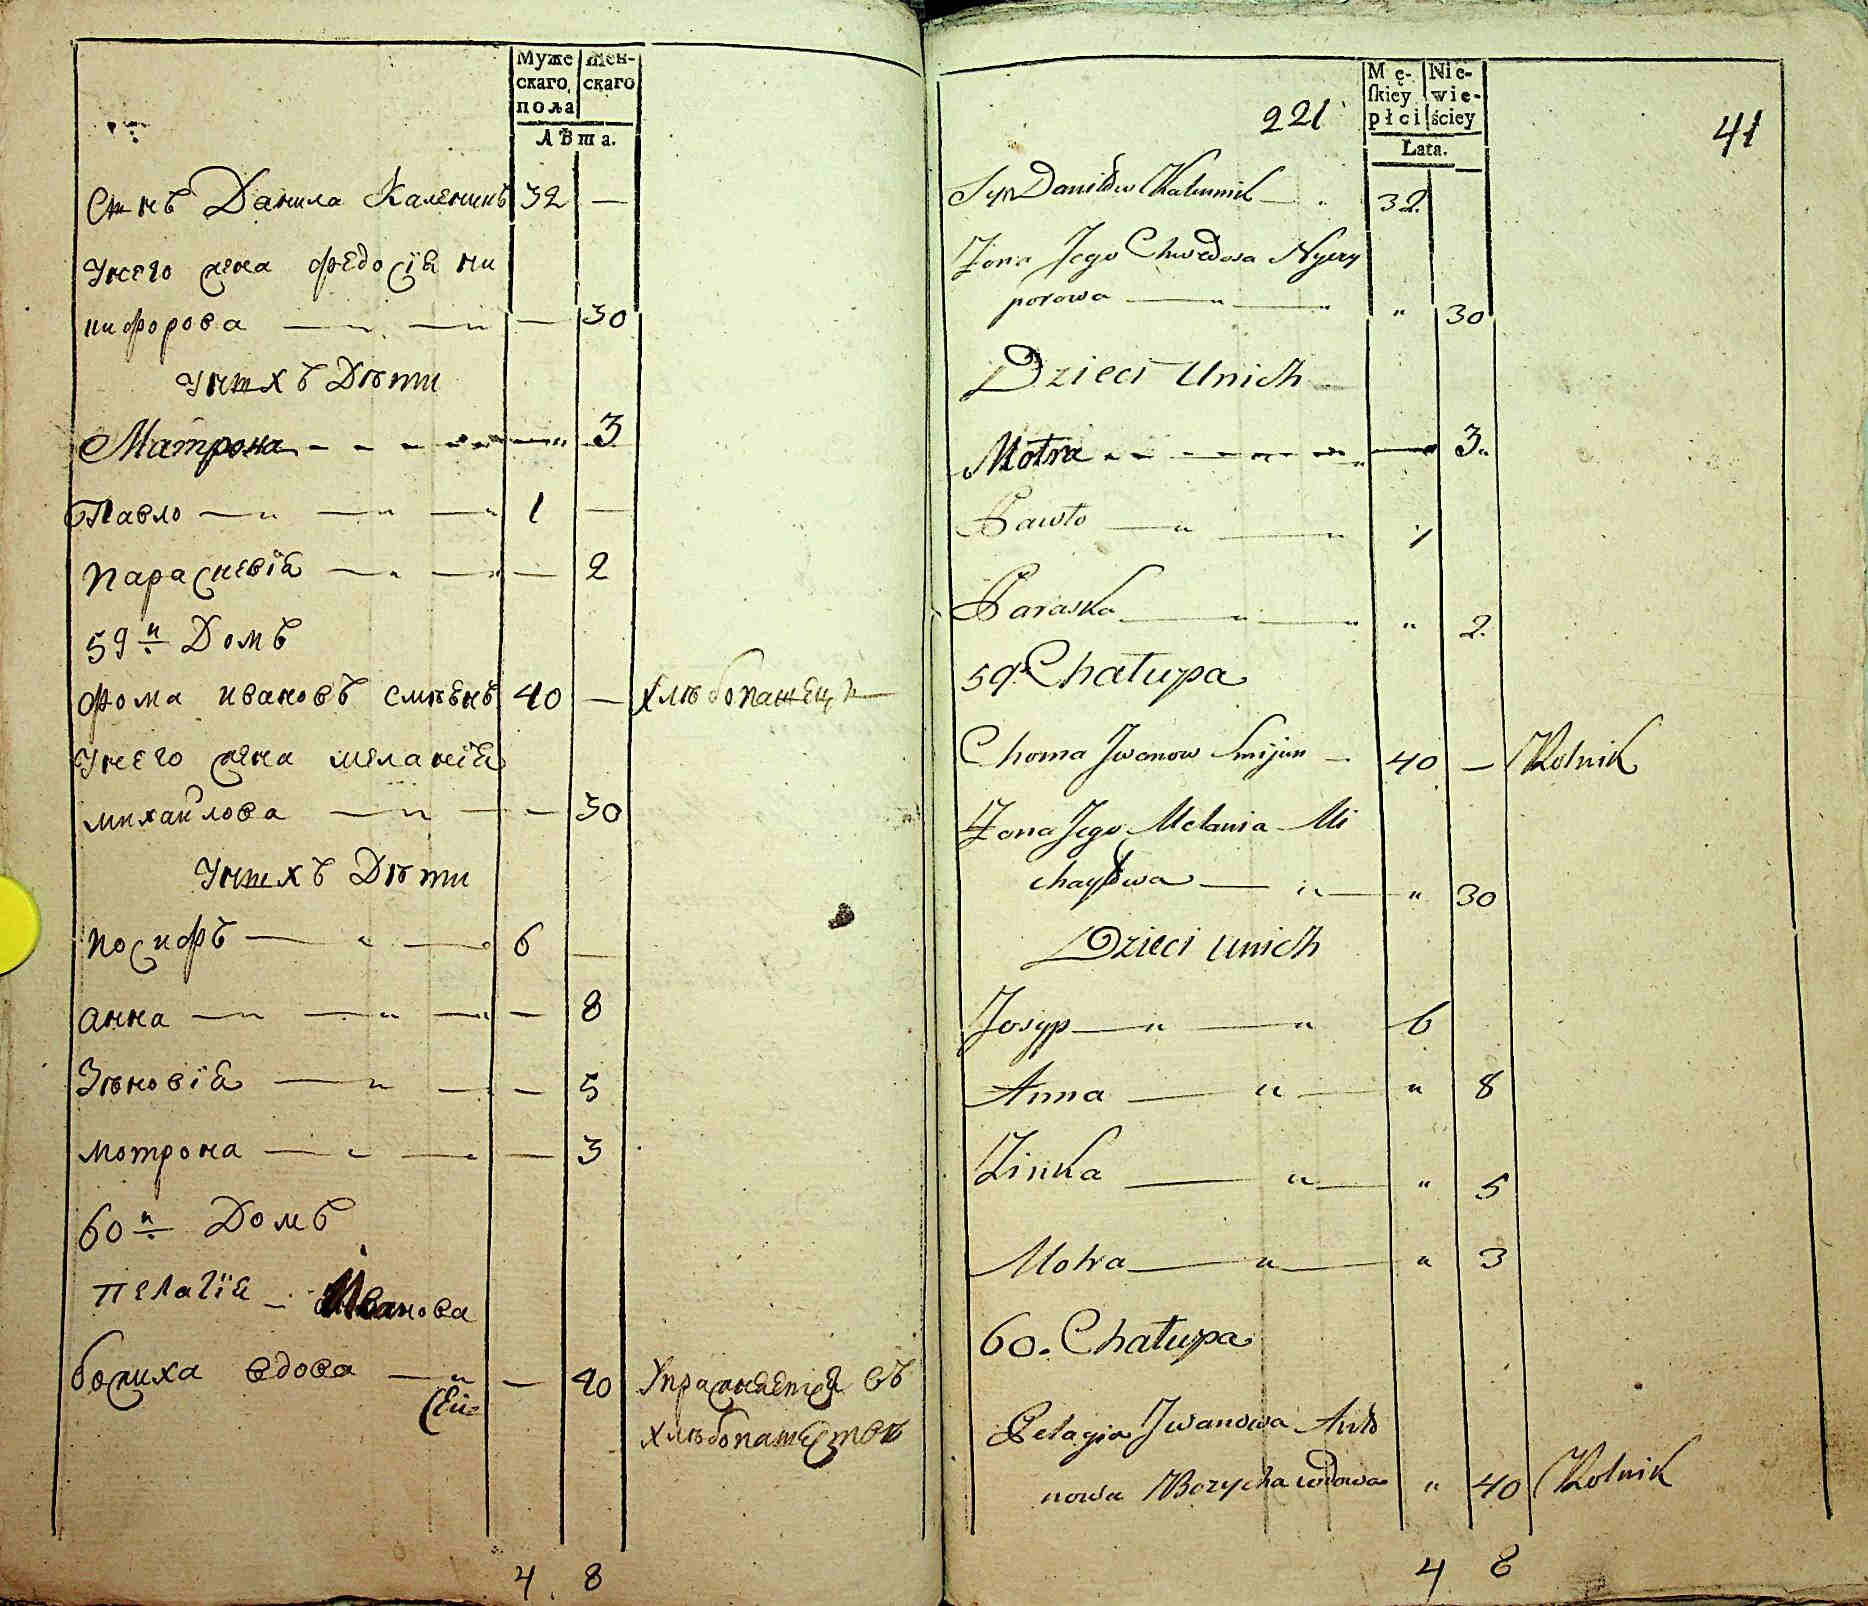 Муже скаго пола
Жен- скаго
Лѣта.
Сынъ Данила Каленикъ 32 —
Унего жена Федосія ни
кифорова — 30
Унихъ Дѣти
Матрона — 3
Павло 1 —
Параскевія — 2
59й Домъ
Фома Ивановъ Смѣянъ 40 — Хлѣбопашецъ
Унего жена Меланія
Михайлова — 30
Унихъ Дѣти
Иосифъ 6 —
Анна — 8
Зѣновія — 5
Мотрона — 3
60й Домъ
Пелагія Иванова
вдова — 40 Упражняется въ
хлѣбопашествѣ
4 8
221
41
Mę- skiey płci
Nie- wie- ściey
Lata.
Syn Daniłow 32.
Żona Jego Chwedosia Nyczy
porowa " 30
Dzieci Unich
Motra — 3.
Pawło 1
Paraska " 2.
59. Chałupa
Choma Jwanow Smijan 40 — Rolnik
Żona Jego Melania Mi
chayłowa " 30
Dzieci Unich
Josyp 6
Anna " 8
Zinka " 5
Motra " 3
60. Chałupa
Pelagia Jwanowa Anto
nowa wdowa " 40 Rolnik
4 8